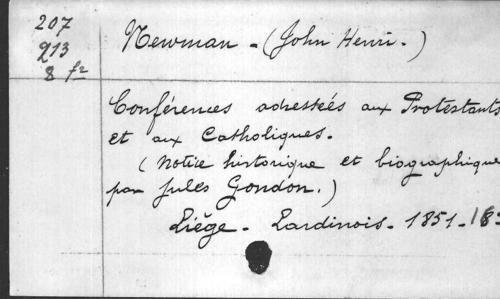 207
213
8 f²
Newman - (John Henri.)
Conférences adressées aux Protestants
et aux Catholiques.
(Notice historique et biographique
par Jules Gondon.)
Liège - Lardinois - 1851.